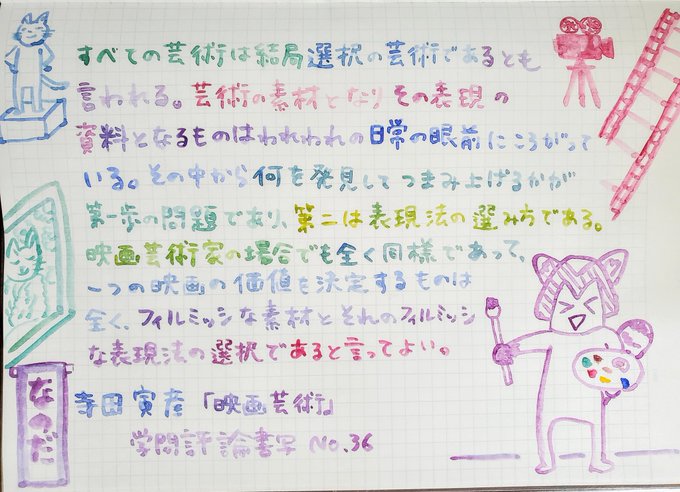 すべての芸術は結局選択の芸術であるとも
言われる。芸術の素材となりその表現の
資料となるものはわれわれの日常の眼前にころがって
いる。その中から何を発見してつまみ上げるかが
第一歩の問題であり、第二は表現法の選み方である。
映画芸術家の場合でも全く同様であって、
一つの映画の価値を決定するものは
全く、フィルミッシな素材とそれのフィルミッシ
な表現法の選択であると言ってよい。
寺田寅彦「映画芸術」
学問評論書写 No.36
なのだ